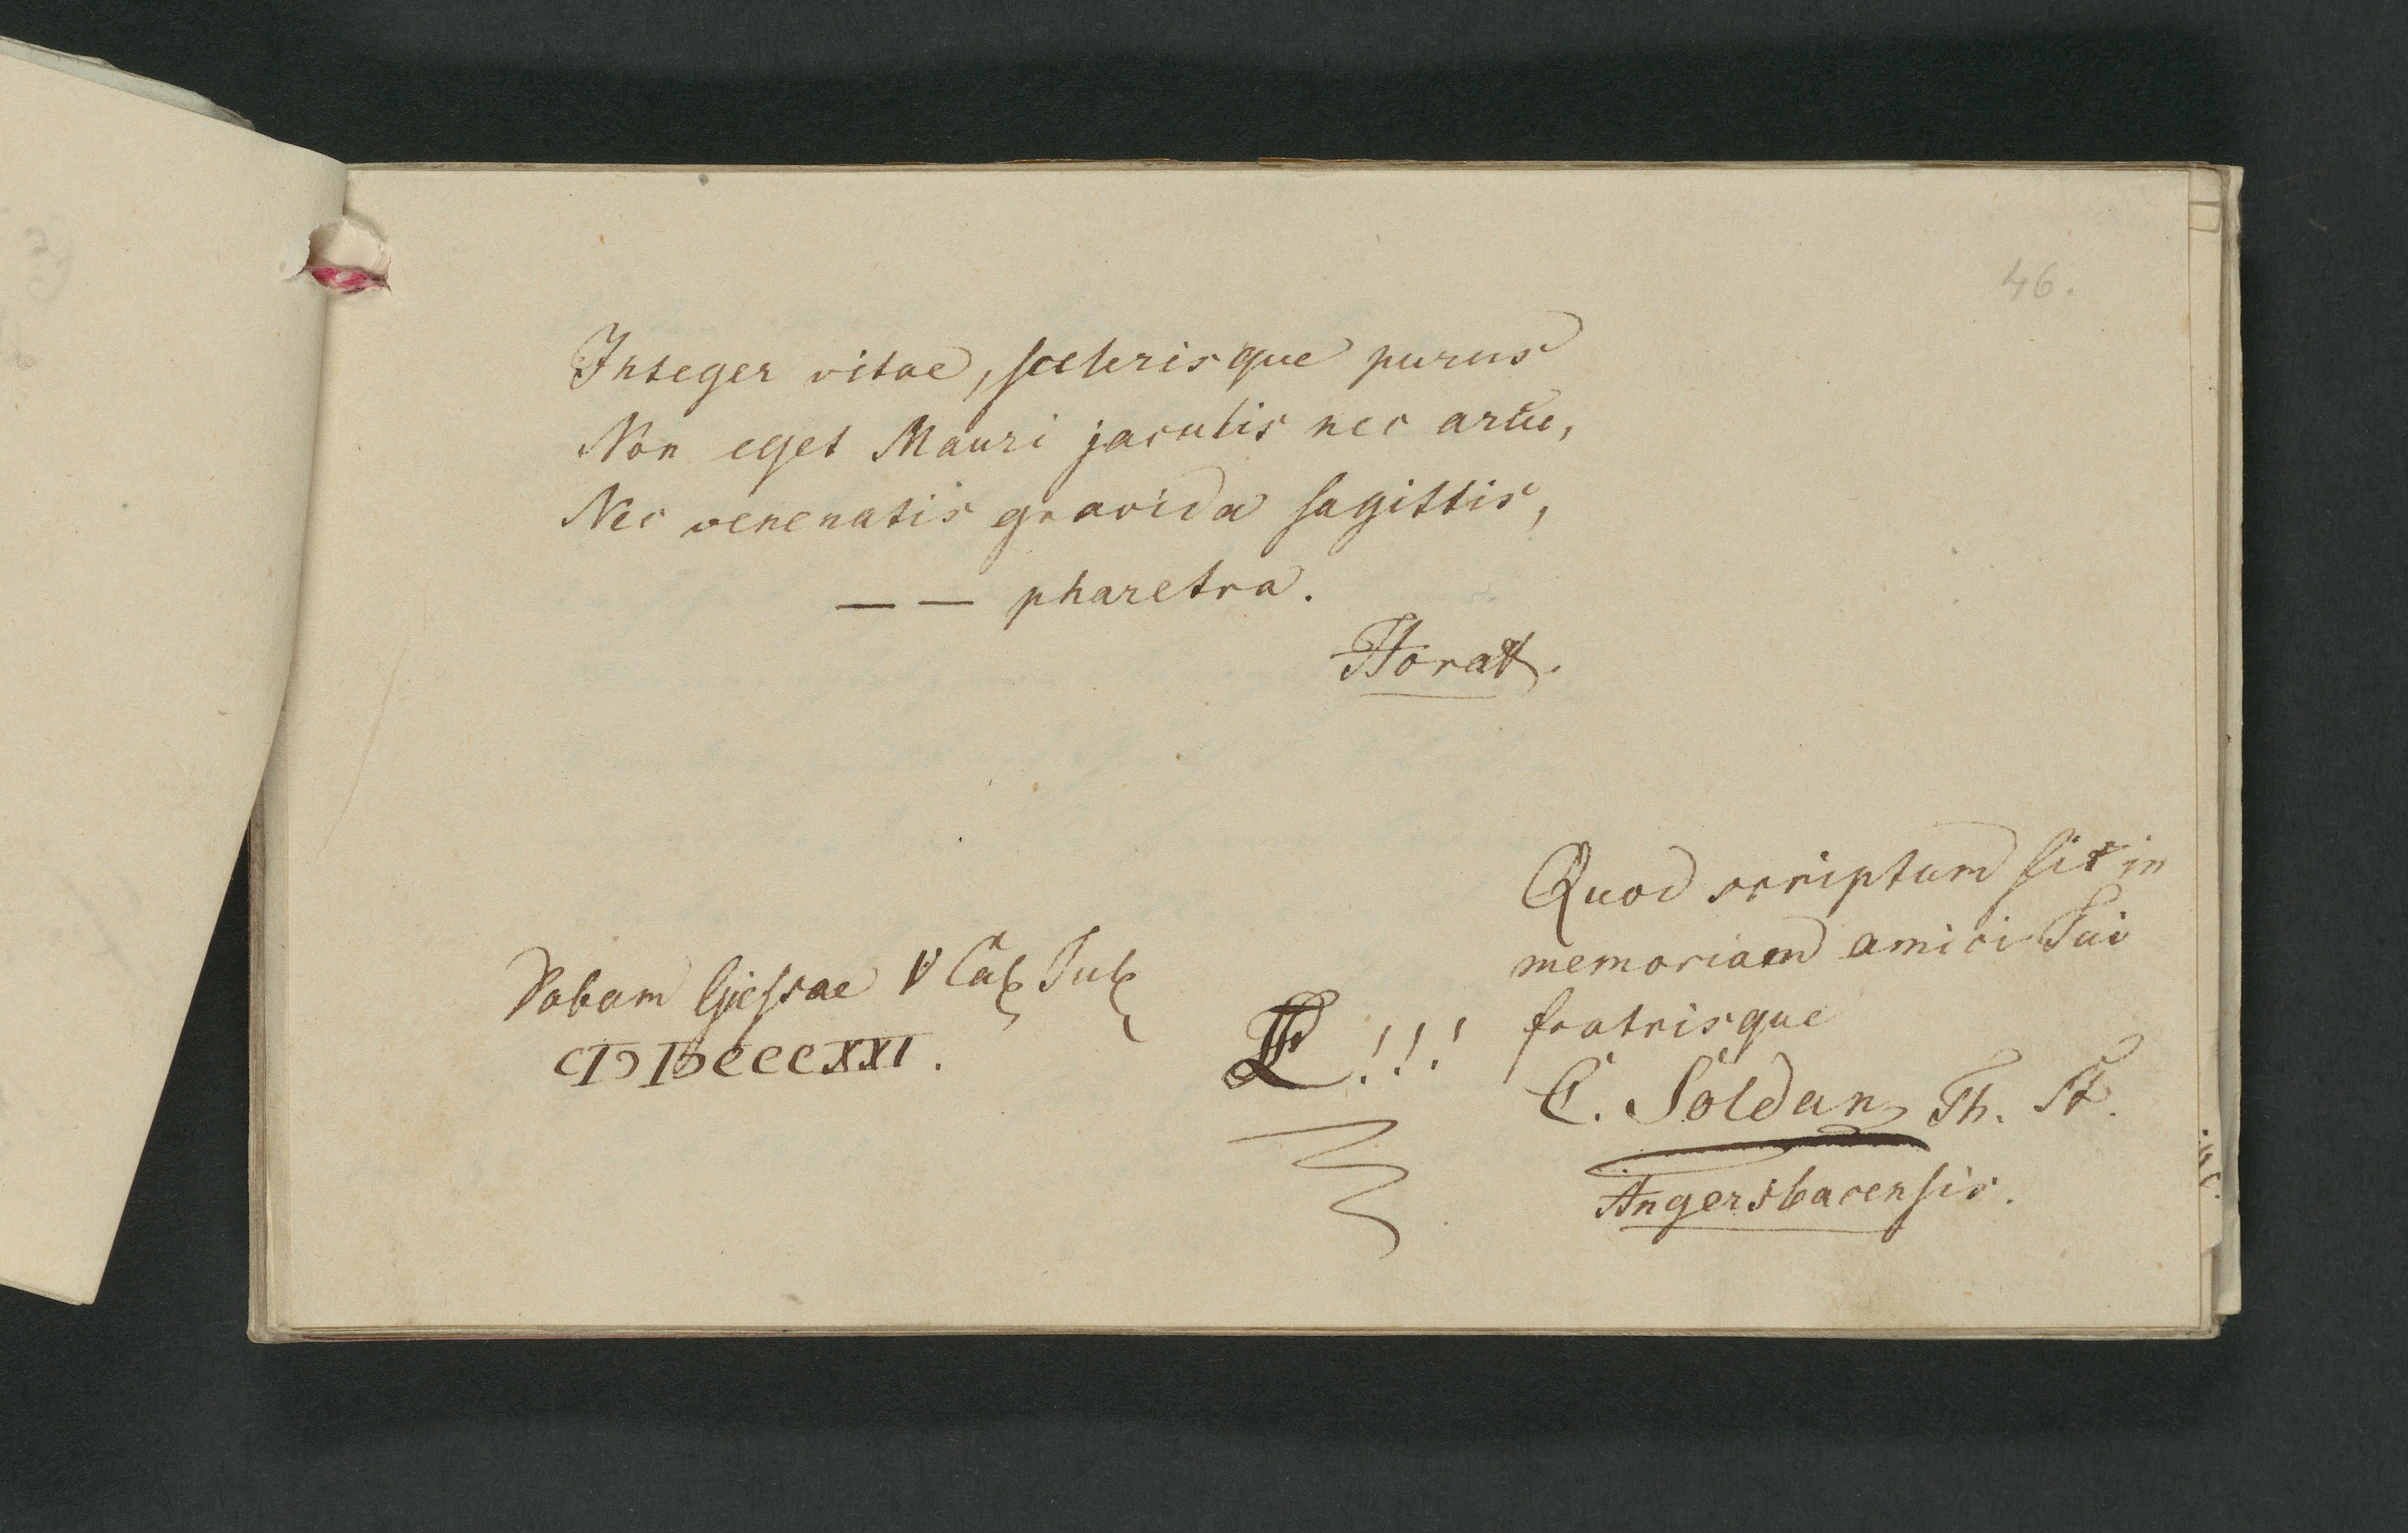 46.
Integer vitae, scelerisque purus
Non eget Mauri jaculis nec arcu,
Nec venenatis gravida sagittis,
— — pharetra.
Horat.
Quod scriptum sit in
memoriam amici Tui
fratrisque
C. Soldan, Th. St.
Angersbacensis.
Dabam Giessae V Cal Jul
CIƆ IƆCCCXXI.
!!!